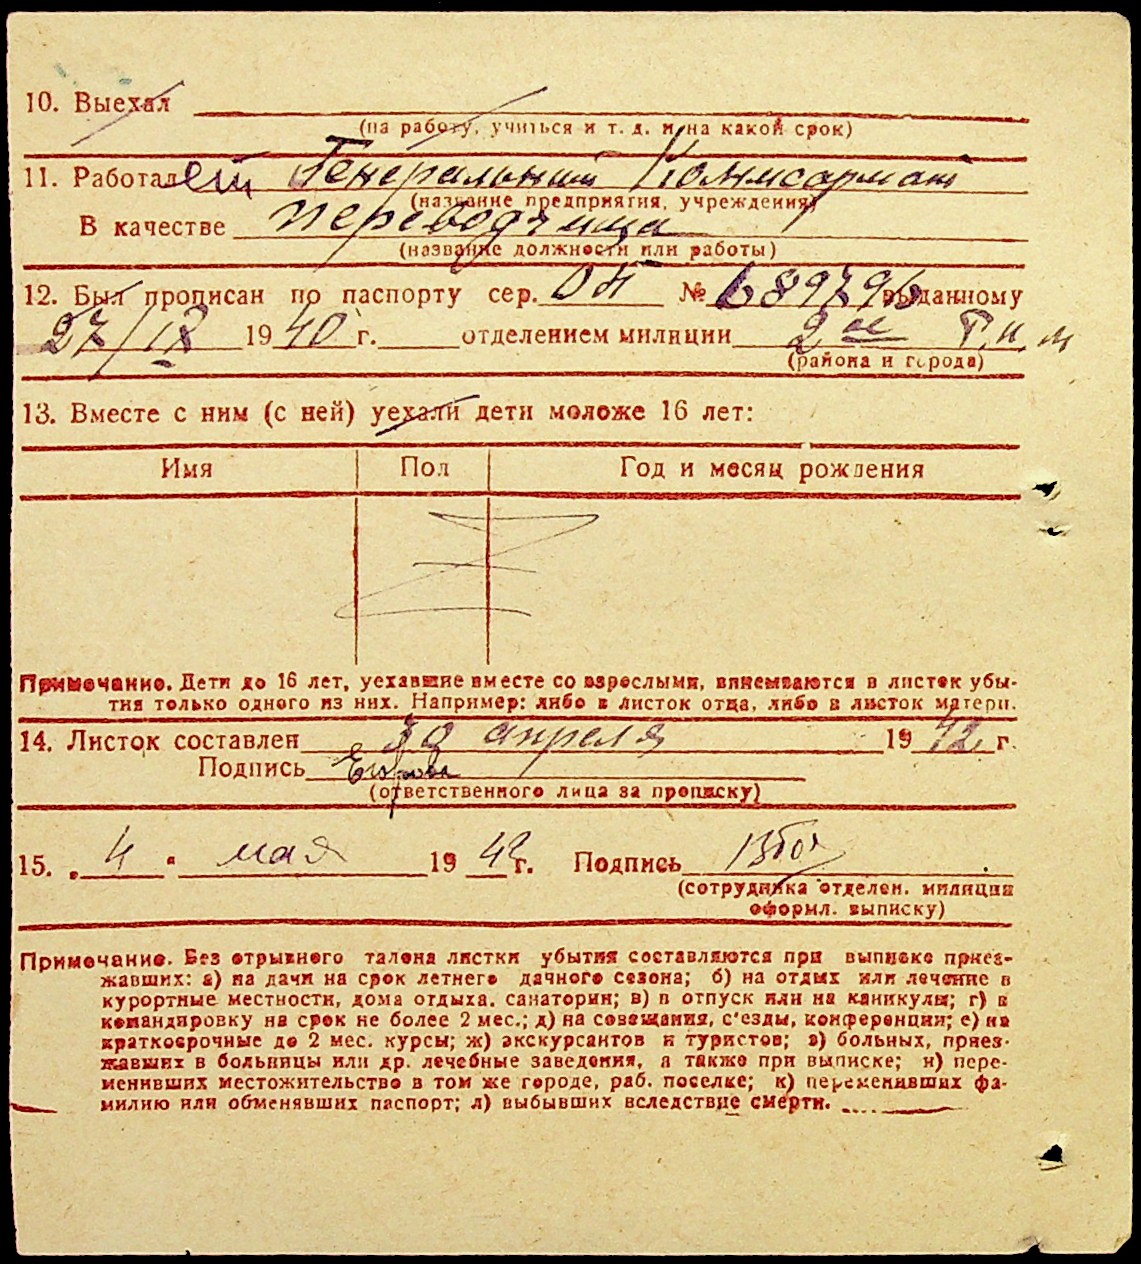 10. Выехал
(на работу, учиться и т. д. и на какой срок)
11. Работает Генеральный Комисариат
(название предприятия, учреждения)
В качестве переводчица
(название должности или работы)
12. Был прописан по паспорту сер. ОП № 689796 выданному
27/IX 1940 г. отделением милиции 2 ое Г.И.М
(района и города)
13. Вместе с ним (с ней) уехали дети моложе 16 лет:
Имя Пол Год и месяц рождения
Примечание. Дети до 16 лет, уехавшие вместе со взрослыми, вписываются в листок убы-
тия только одного из них. Например: либо в листок отца, либо в листок матери.
14. Листок составлен 30 апреля 1942 г.
Подпись Егорова
(ответственного лица за прописку)
15. „4" мая 1942 г. Подпись
(сотрудника отделен. милиции
оформл. выписку)
Примечание. Без отрывного талона листки убытия составляются при выписке приез-
жавших: а) на дачи на срок летнего дачного сезона; б) на отдых или лечение в
курортные местности, дома отдыха, санатории; в) в отпуск или на каникулы; г) в
командировку на срок не более 2 мес.; д) на совещания, с'езды, конференции; е) на
краткосрочные до 2 мес. курсы; ж) экскурсантов и туристов; з) больных, приез-
жавших в больницы или др. лечебные заведения, а также при выписке; и) пере-
менивших местожительство в том же городе, раб. поселке; к) переменивших фа-
милию или обменявших паспорт; л) выбывших вследствие смерти.